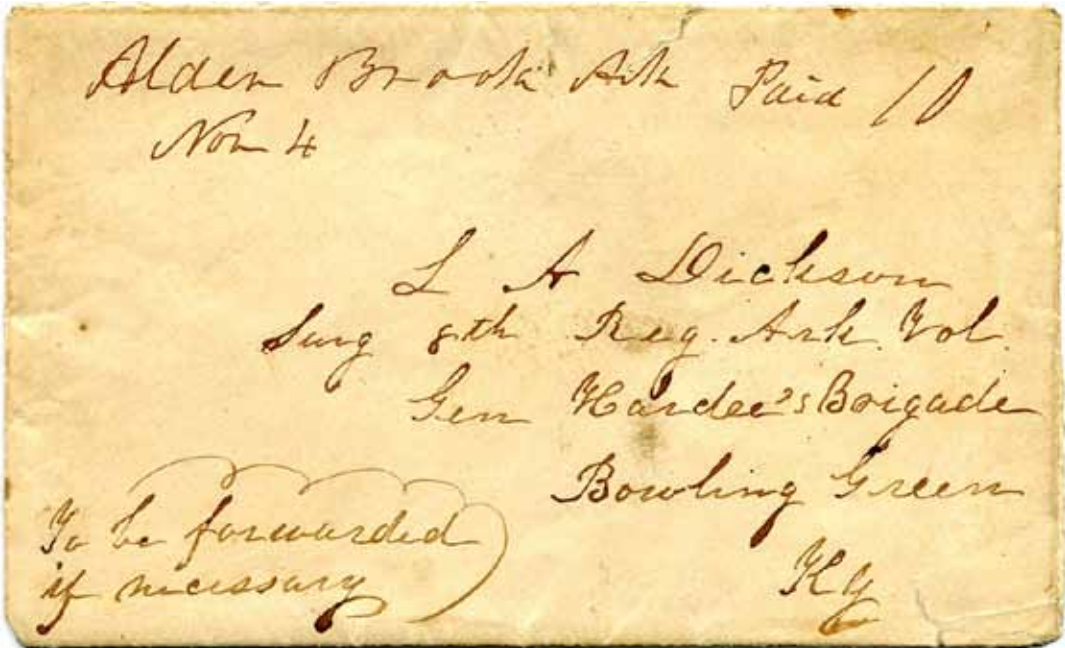 Alden Brook Ark Paid 10
Nov 4
L A Dickson
Surg 8th Reg. Ark. Vol.
Gen Hardee's Brigade
Bowling Green
Ky
To be forwarded
if necessary